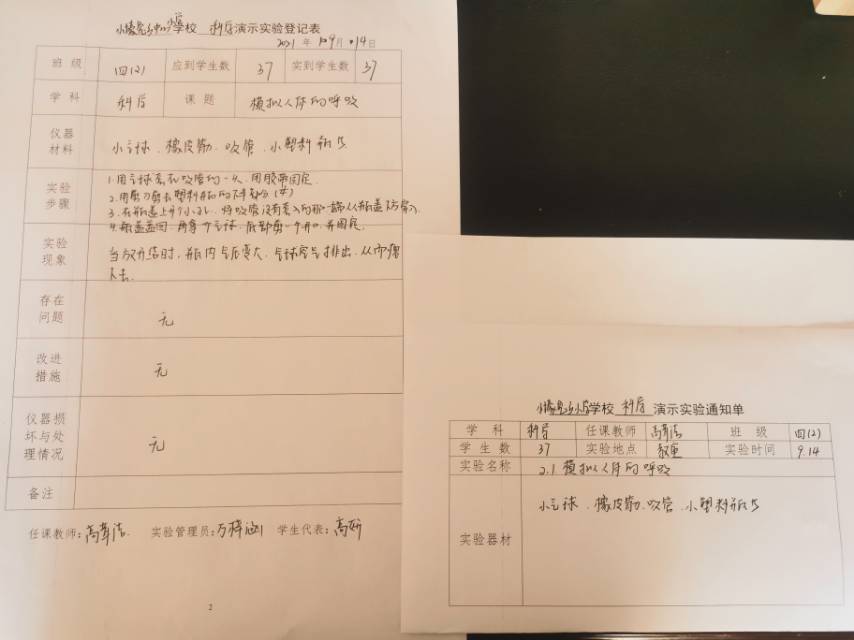 学校 科学 演示实验登记表
2021 年 09月 14日
班 级 四(2) 应到学生数 37 实到学生数 37
学 科 科学 课 题 模拟人体的呼吸
仪器材料 小气球、橡皮筋、吸管、小塑料瓶
实验步骤 1.用气球套在吸管的一头,用胶带固定
2.用剪刀剪去塑料瓶的下半部分
3.在瓶盖上开个小孔,将吸管没有套入的那一端从瓶盖下方穿入
4.瓶盖盖回,再拿个气球,底部剪一个开口,并固定.
实验现象 时,瓶内气压变大,气球空气排出,从而瘪
下去.
存在问题 无
改进措施 无
仪器损坏与处理情况 无
备注
任课教师: 实验管理员:万 学生代表:高妍
2
学校 科学 演示实验通知单
学 科 科学 任课教师 班 级 四(2)
学 生 数 37 实验地点 教室 实验时间 9.14
实验名称 2.1 模拟人体的呼吸
实验器材 小气球、橡皮筋、吸管、小塑料瓶